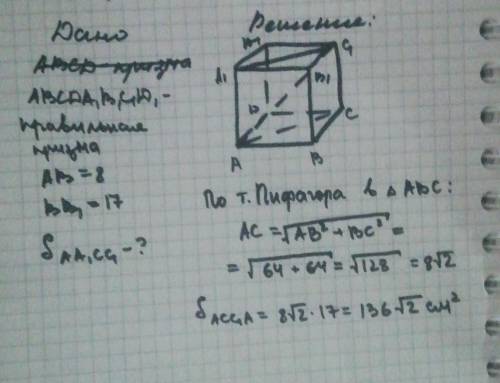 Дано
ABCD призма
ABCDA₁B₁C₁D₁ -
правильная
призма
AB = 8
BB₁ = 17
S AA₁CC₁ - ?
Решение:
D₁ C₁
A₁ B₁
D C
A B
По т. Пифагора в △ ABC:
AC = √AB² + BC² =
= √64 + 64 = √128 = 8√2
S ACC₁A = 8√2 · 17 = 136√2 см²